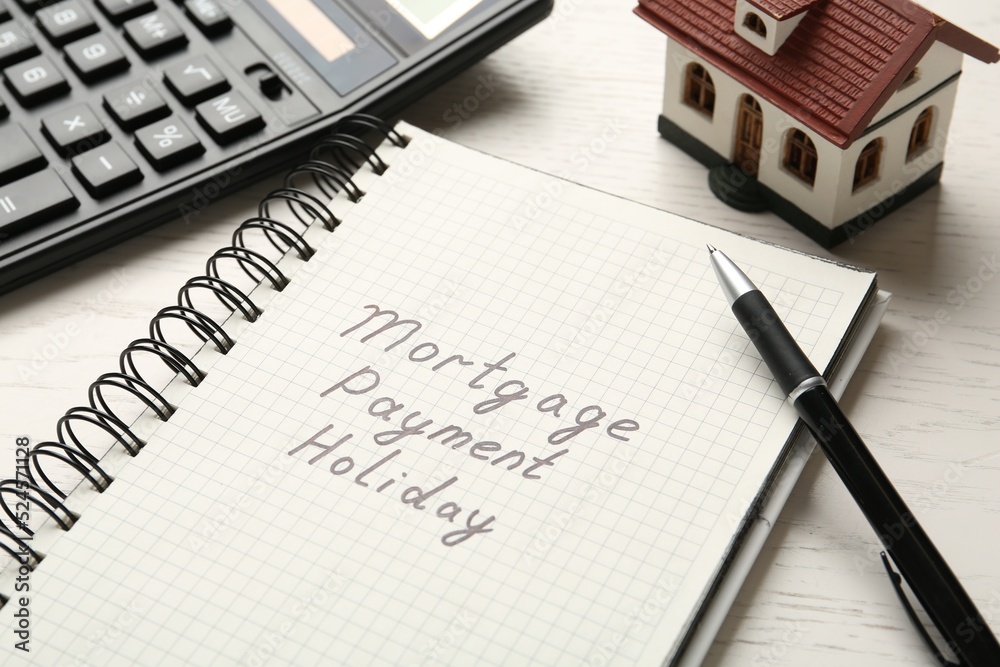 M+
M-
9
6
√
MU
÷
%
×
-
=
Mortgage
Payment
Holiday
Adobe Stock | #524571128